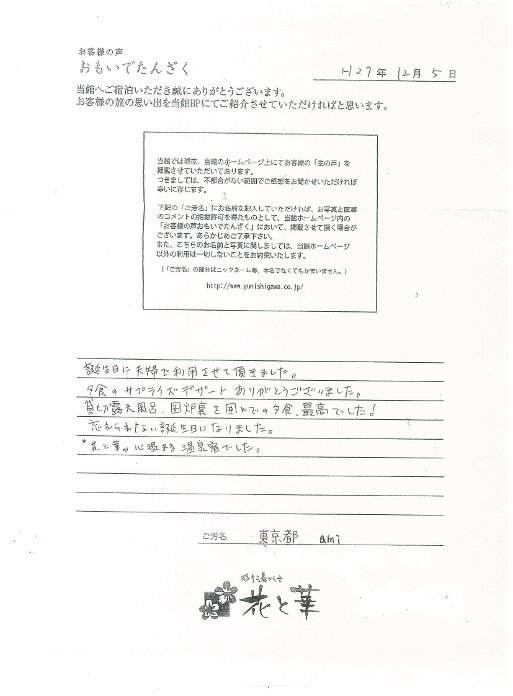 お客様の声
おもいでたんざく
H27年 12月 5日
当館へご宿泊いただき誠にありがとうございます。
お客様の旅の思い出を当館HPにてご紹介させていただければと思います。
当館では現在、当館のホームページ上にてお客様の「生の声」を
掲載させていただいております。
つきましては、不都合がない範囲でご感想をお聞かせいただければ
幸いに存じます。
下記の「ご芳名」にお名前を記入していただければ、お写真と直筆
のコメントの掲載許可を得たものとして、当館ホームページ内の
「お客様の声おもいでたんざく」において、掲載させて頂く場合が
ございます。あらかじめご了承下さい。
また、こちらのお名前と写真に関しましては、当館ホームページ
以外の利用は一切しないことをお約束いたします。
(「ご芳名」の部分はニックネーム等、本名でなくてもかまいません。)
http://www.yunishigawa.co.jp/
誕生日に夫婦で利用させて頂きました。
夕食のサプライズデザートありがとうございました。
貸切露天風呂、囲炉裏を囲んでの夕食、最高でした!
忘れられない誕生日になりました。
"花と華"心温まる温泉宿でした。
ご芳名 東京都 ami
花と華